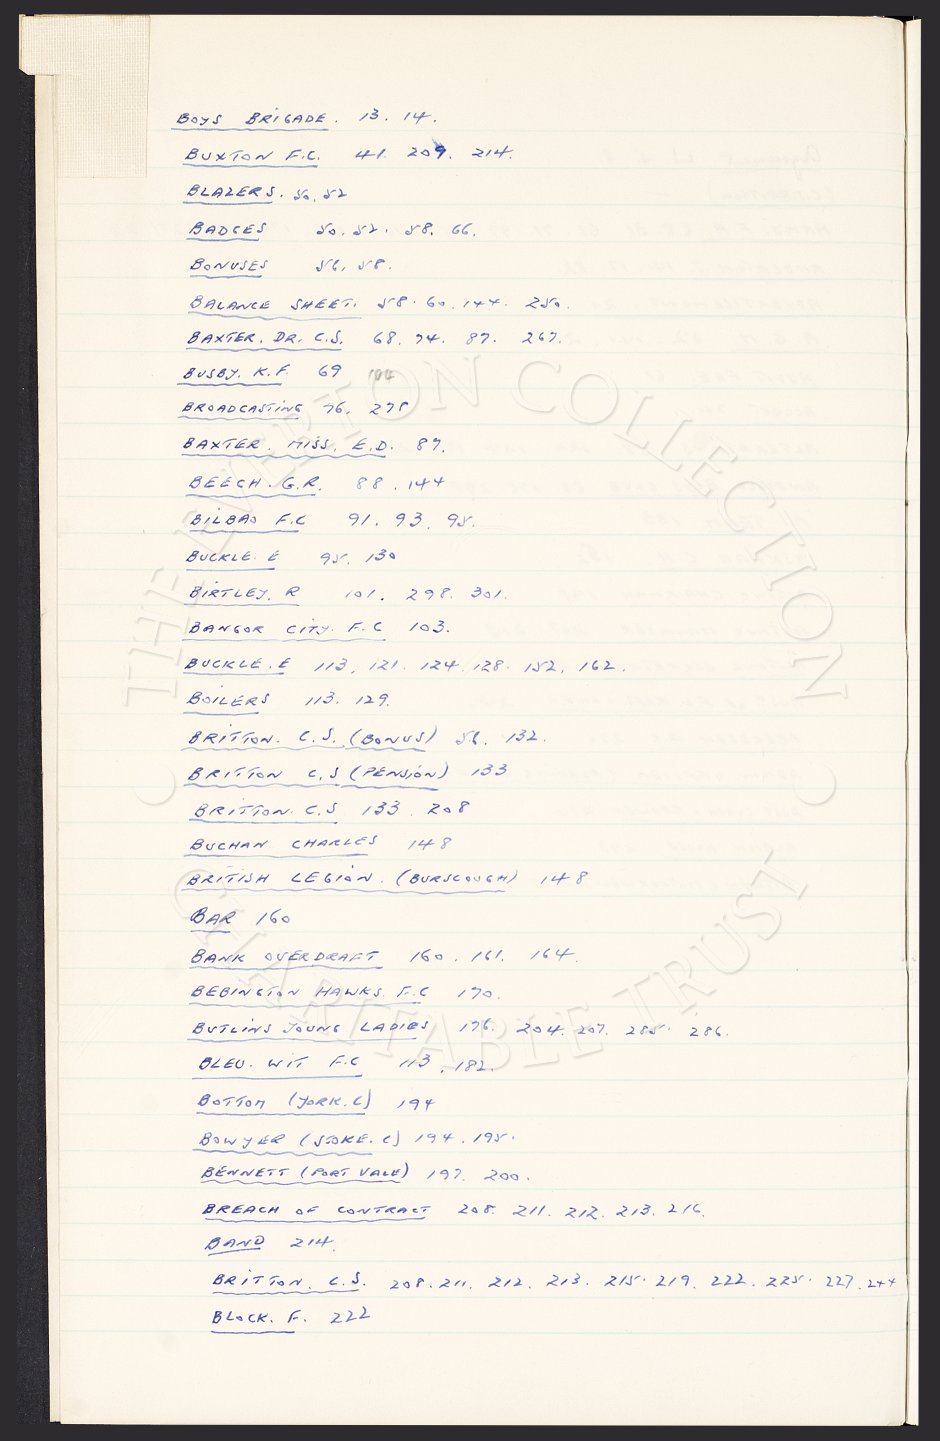 BOYS BRIGADE. 13. 14.
BUXTON F.C. 41. 209. 214.
BLAZERS. 50. 52
BADGES 50. 52. 58. 66.
BONUSES 56. 58.
BALANCE SHEET. 58. 60. 144. 250.
BAXTER. DR. C.S. 68. 74. 87. 267.
BUSBY. K.F 69 104
BROADCASTING 76. 278
BAXTER. MISS. E.D. 87.
BEECH. G.R. 88. 144
BILBAO F.C 91. 93. 95.
BUCKLE. E 95. 130
BIRTLEY. R 101. 298. 301.
BANGOR CITY. F.C 103.
BUCKLE. E 113. 121. 124. 128. 152. 162.
BOILERS 113. 129.
BRITTON. C.S. (BONUS) 56. 132.
BRITTON C.S (PENSION) 133
BRITTON. C.S 133. 208
BUCHAN CHARLES 148
BRITISH LEGION. (BURSCOUGH) 148
BAR 160
BANK OVERDRAFT 160. 161. 164.
BEBINGTON HAWKS. F.C 170.
BUTLINS YOUNG LADIES 176. 204. 207. 285. 286.
BLEU. WIT F.C 113. 182.
BOTTOM (YORK. C) 194
BOWYER (STOKE. C) 194. 195.
BENNETT (PORT VALE) 197. 200.
BREACH OF CONTRACT 208. 211. 212. 213. 216.
BAND 214.
BRITTON. C.S. 208. 211. 212. 213. 215. 219. 222. 225. 227. 244
BLOCK. F. 222
THE EVERTON COLLECTION
CHARITABLE TRUST